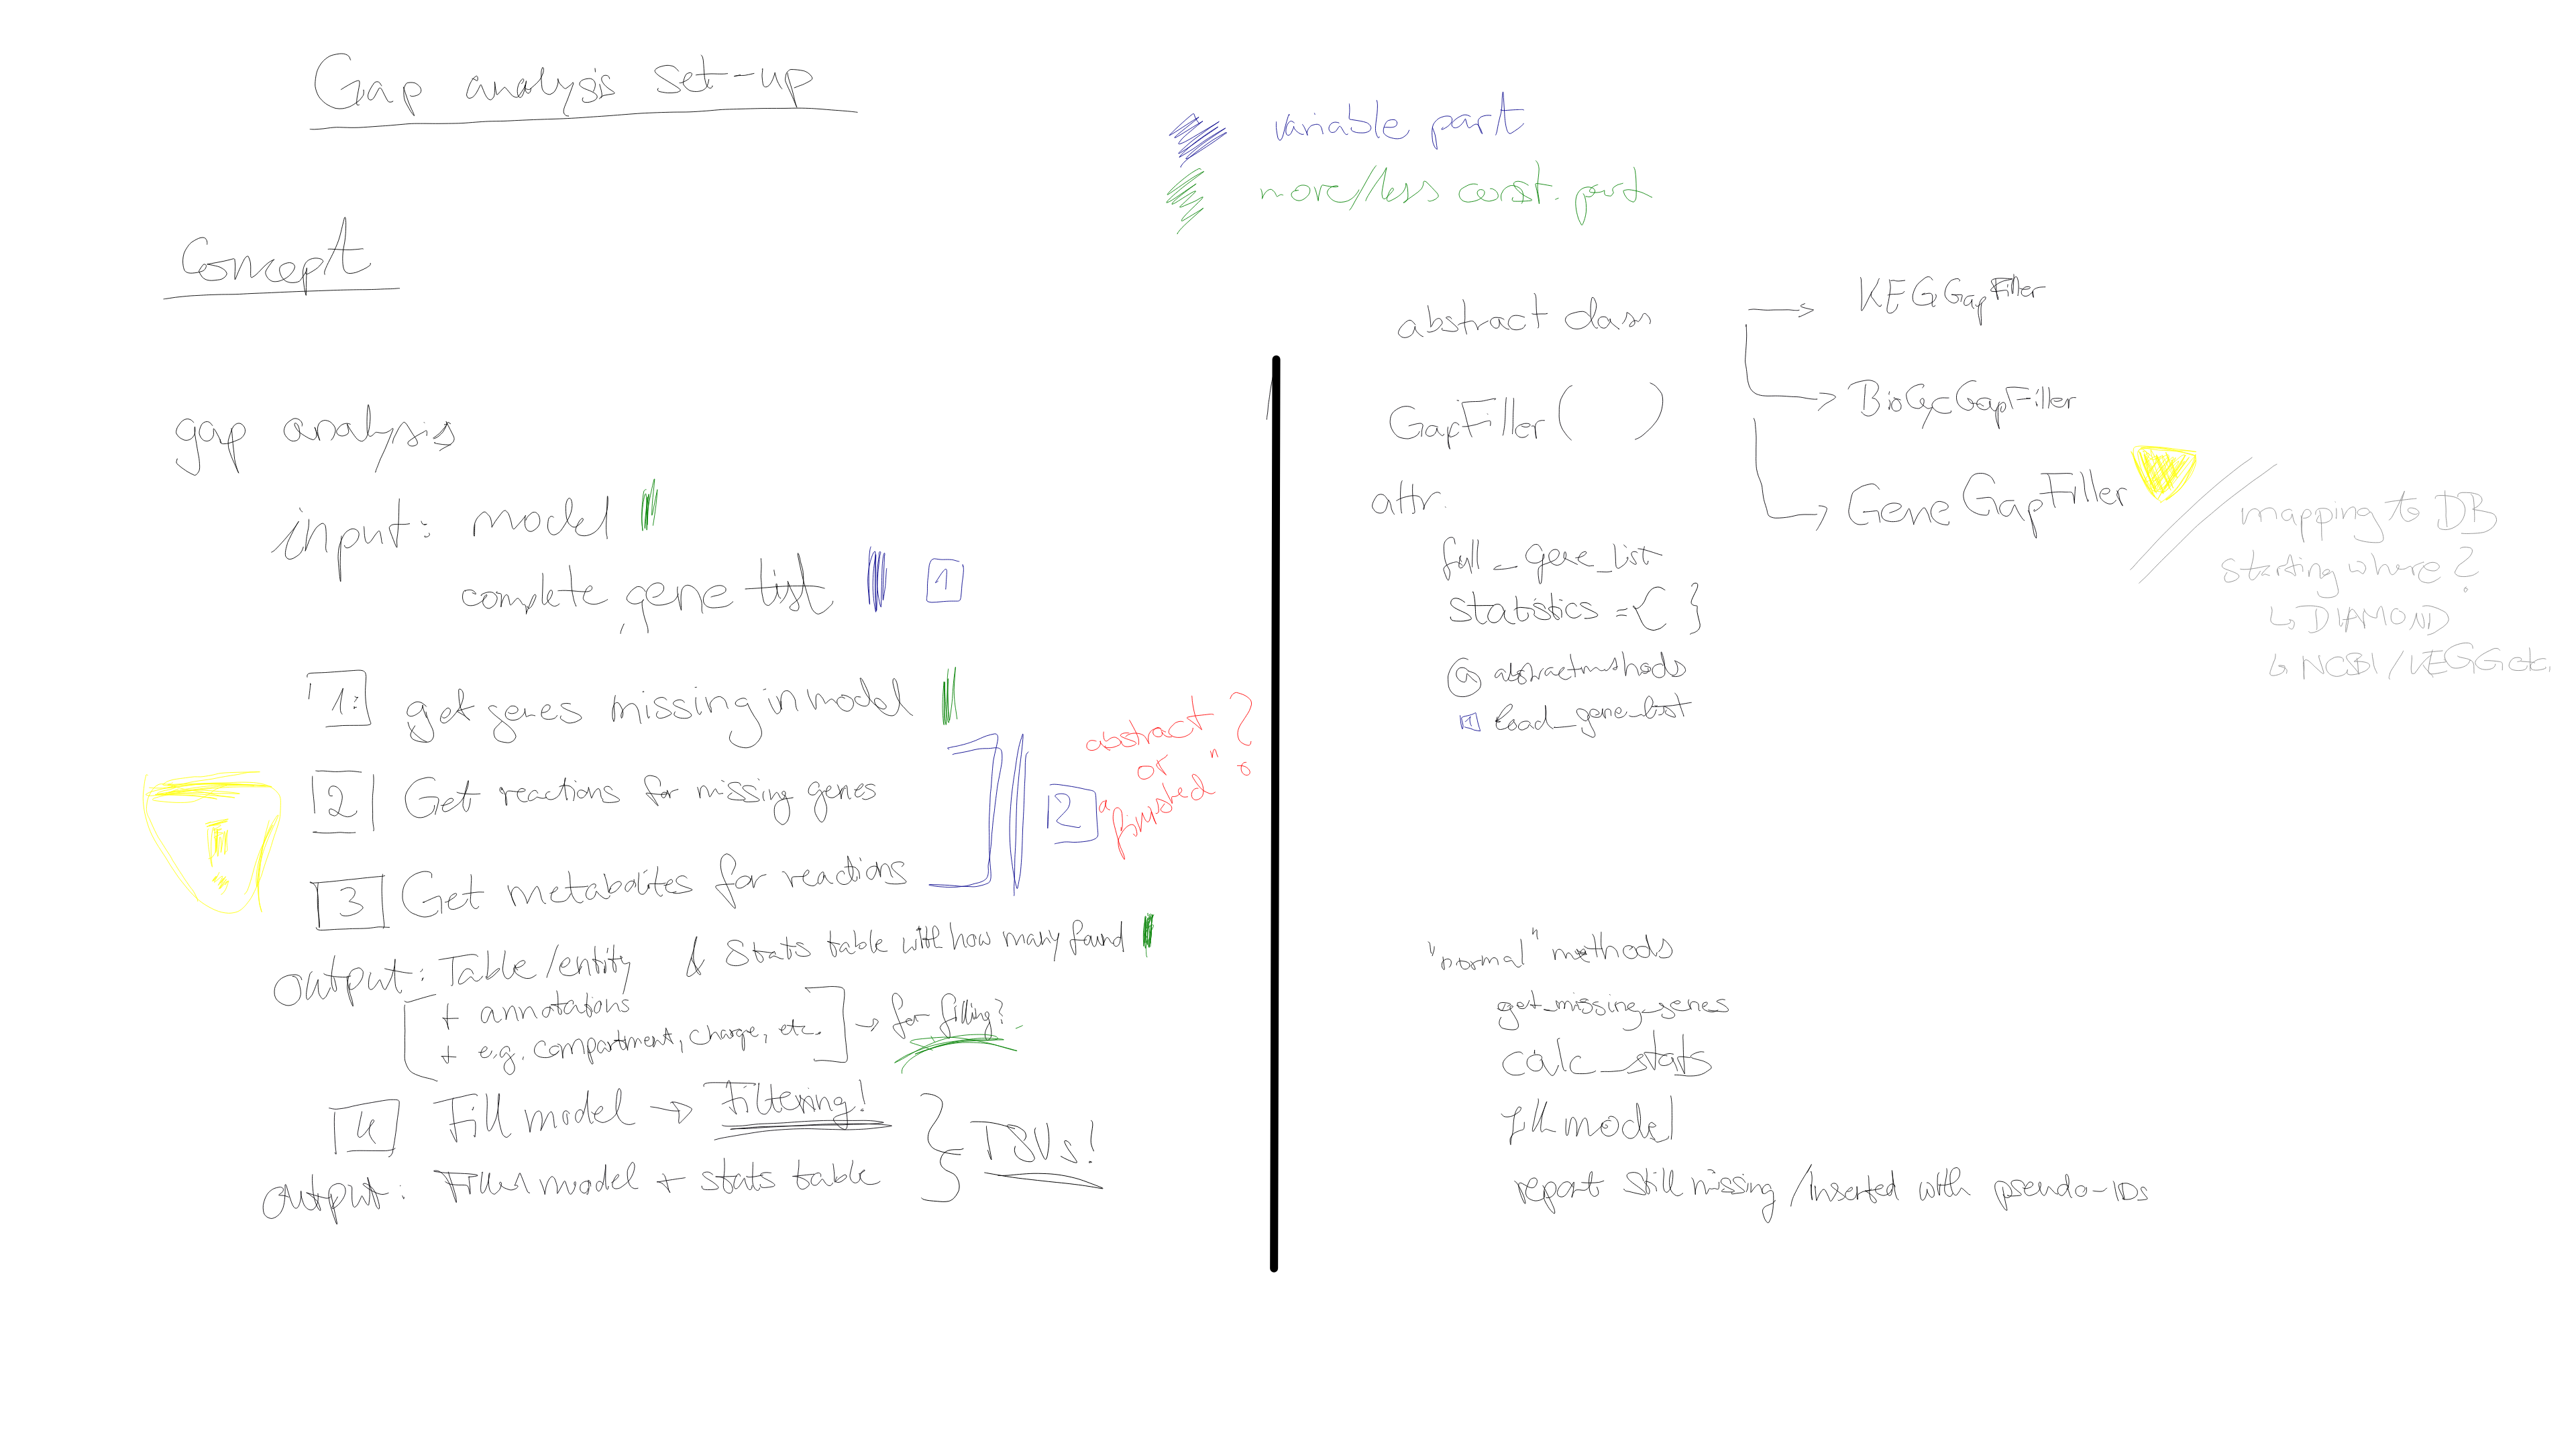 Gap analysis set-up
variable part
more/less const. part
Concept
gap analysis
input: model
complete gene list 1
1: get genes missing in model
2 Get reactions for missing genes
3 Get metabolites for reactions
2
abstract
or
"finished" ?
output: Table/entity & Stats table with how many found
+ annotations
+ e.g. compartment, charge, etc. → for filling?
4 Fill model → Filtering!
output: Filled model + stats table
TSVs!
abstract class
GapFiller( )
→ KEGGGapFiller
→ BioCycGapFiller
→ GeneGapFiller
mapping to DB
starting where?
↳ DIAMOND
↳ NCBI / KEGG etc.
attr.
full_gene_list
statistics = { }
@ abstractmethods
1 load_gene_list
"normal" methods
get_missing_genes
calc_stats
fill model
report still missing / inserted with pseudo-IDs